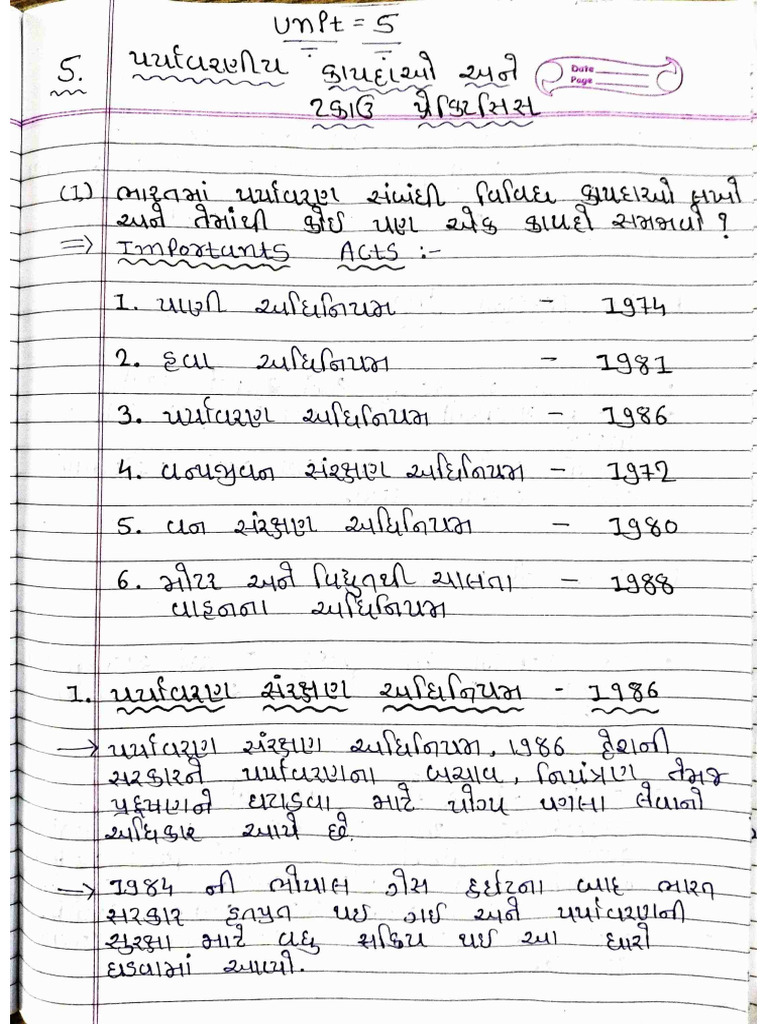 Unit = 5
5. પર્યાવરણીય કાયદાઓ અને
Date
Page
ટકાઉ પ્રેક્ટિસિસ
(1) ભારતમાં પર્યાવરણ સંબંધી વિવિધ કાયદાઓ લખો
અને તેમાંથી કોઈ પણ એક કાયદો સમજાવો ?
⇒ Importants Acts :-
1. પાણી અધિનિયમ - 1974
2. હવા અધિનિયમ - 1981
3. પર્યાવરણ અધિનિયમ - 1986
4. વન્યજીવન સંરક્ષણ અધિનિયમ - 1972
5. વન સંરક્ષણ અધિનિયમ - 1980
6. મોટર અને વિધુતથી ચાલતા - 1988
વાહનના અધિનિયમ
1. પર્યાવરણ સંરક્ષણ અધિનિયમ - 1986
→ પર્યાવરણ સંરક્ષણ અધિનિયમ, 1986 દેશની
સરકારને પર્યાવરણના બચાવ, નિયંત્રણ તેમજ
પ્રદૂષણને ઘટાડવા માટે યોગ્ય પગલા લેવાનો
અધિકાર આપે છે.
→ 1984 ની ભોપાલ ગેસ દુર્ઘટના બાદ ભારત
સરકાર થઈ ગઈ અને પર્યાવરણની
સુરક્ષા માટે વધુ સક્રિય થઈ આ ધારો
ઘડવામાં આવ્યો.